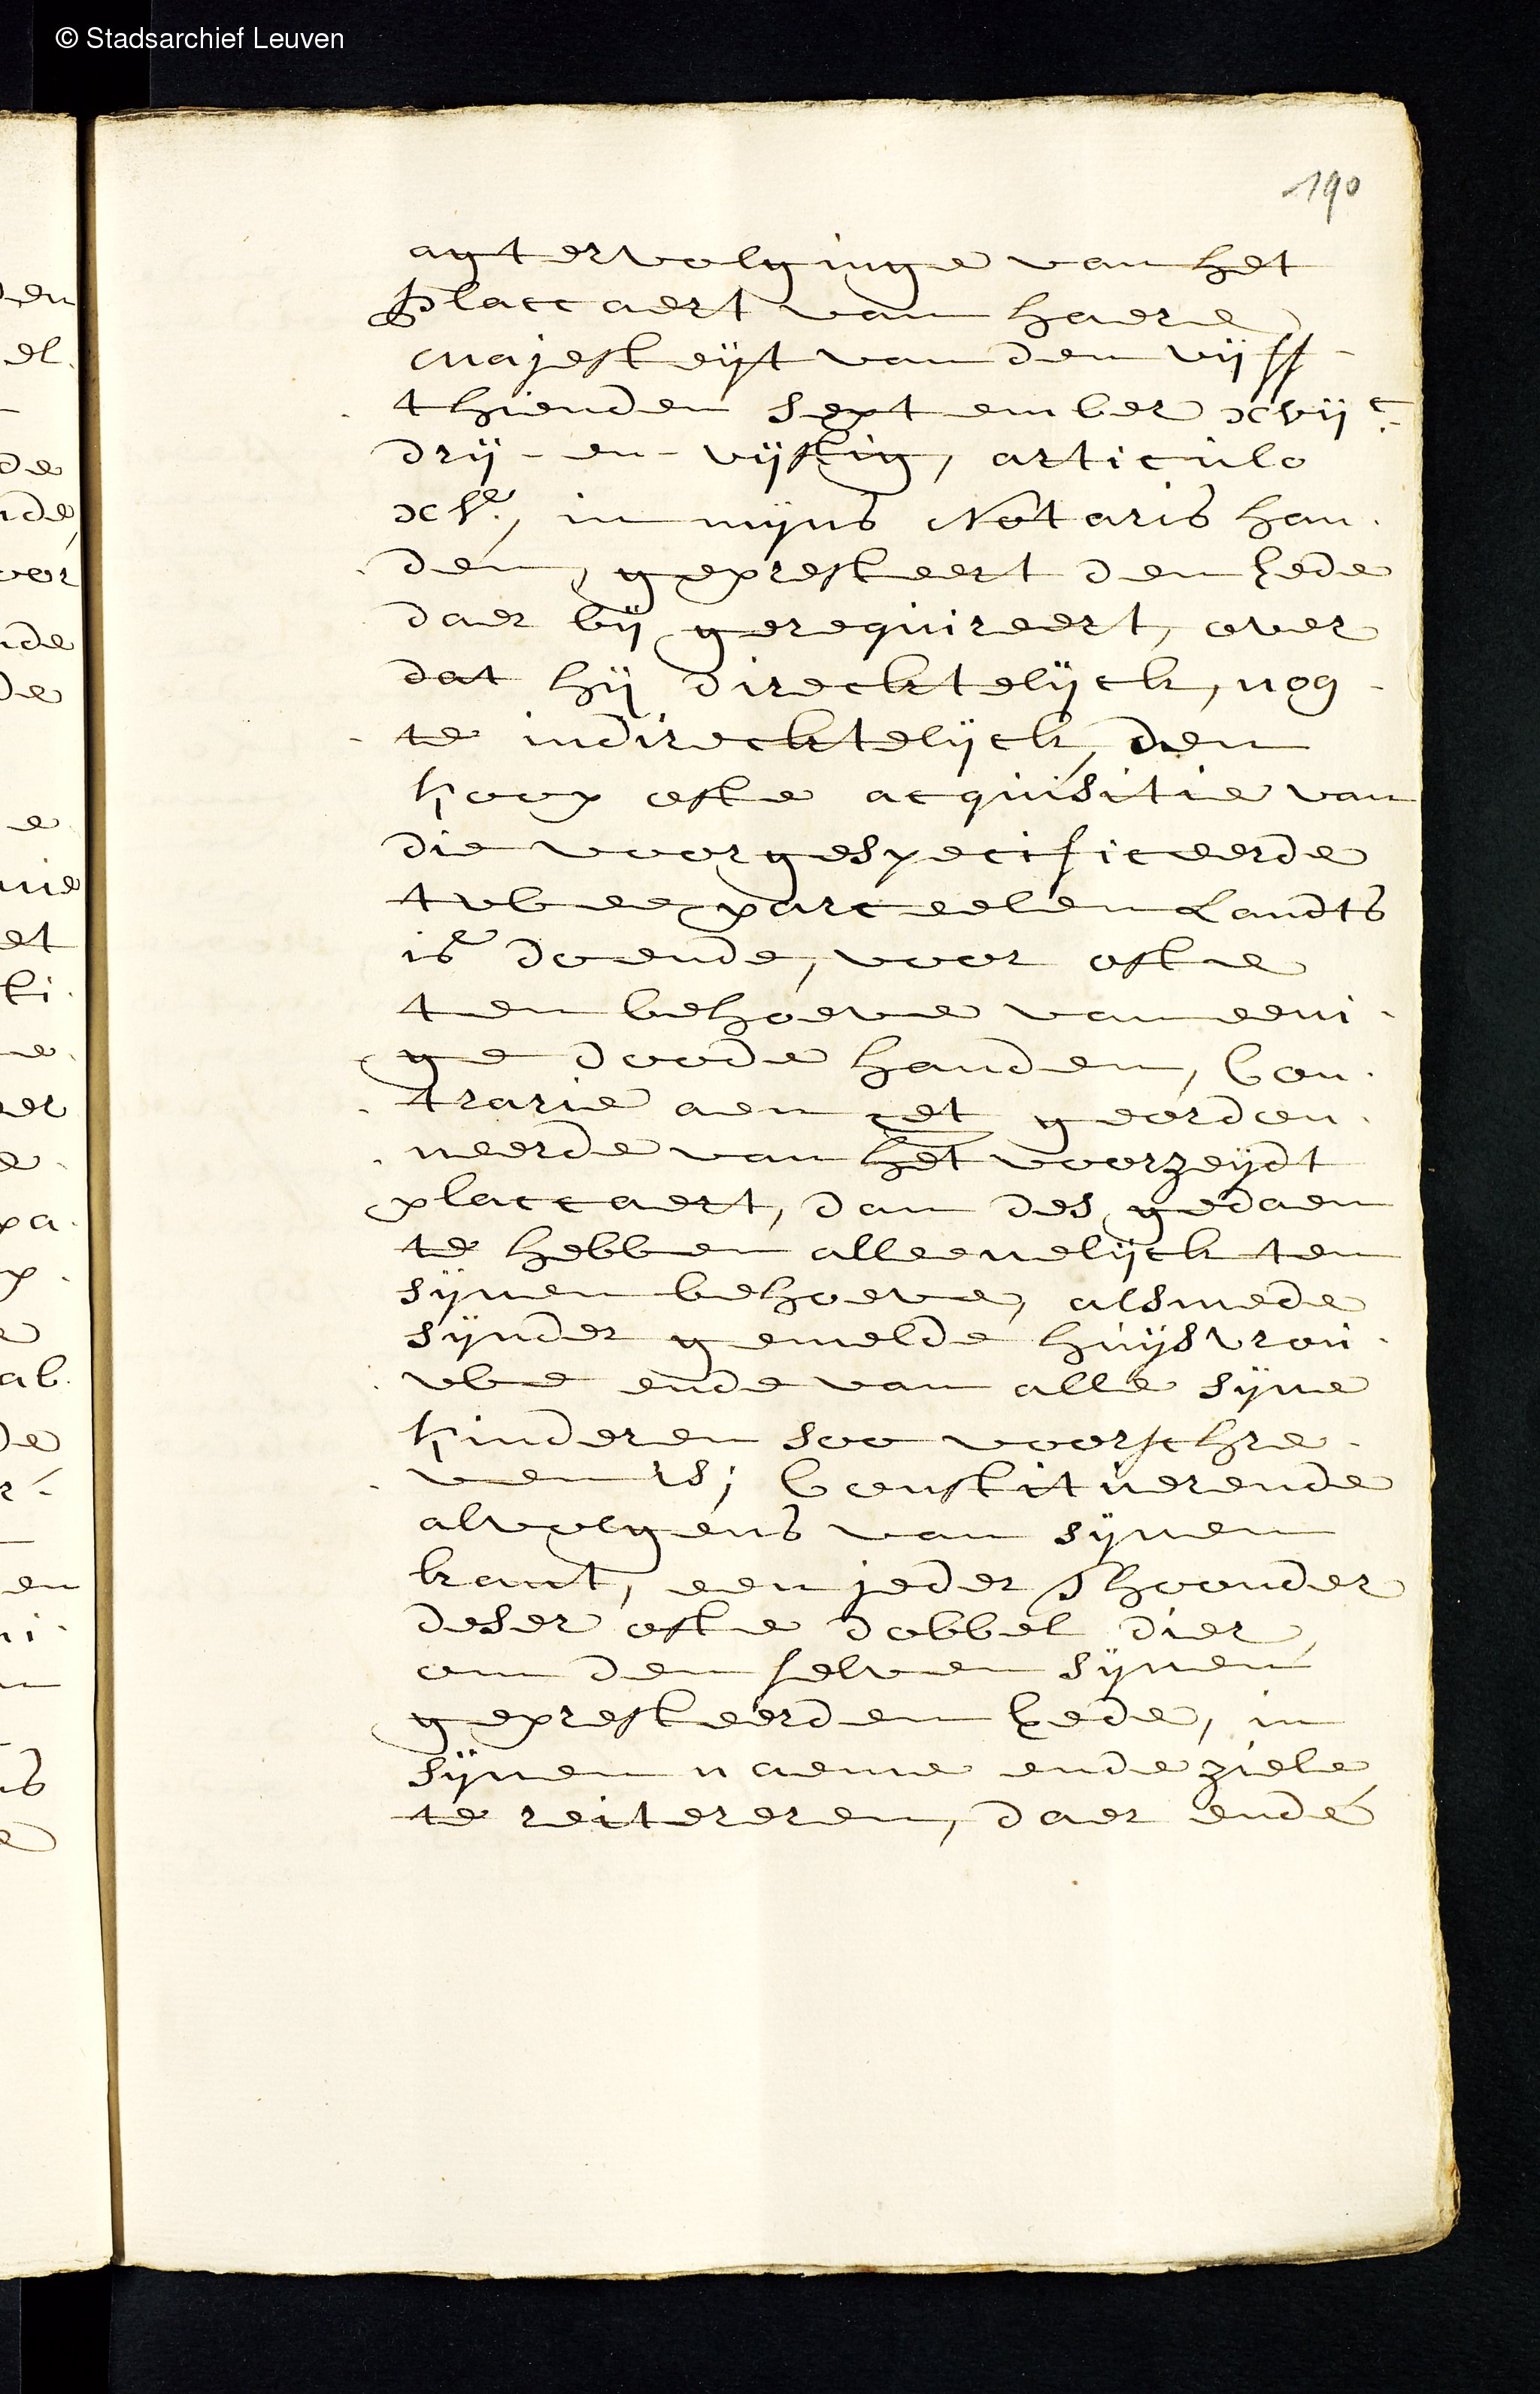 © Stadsarchief Leuven
190
agtervolginge van het
placcaert van haere
Majesteÿt van den vÿff-
thienden september xvijc
drij-en-vijftig, articulo
xve, in mijns Notaris han-
den, gepresteert den Eede
daer bij gerequireert, over
dat hij direcktelijck, nog-
te indirecktelijck, den
koop ofte acquisitie van
die voorgespecificeerde
twee parceelen Landts
is doende, voor ofte
ten behoeve van eeni-
ge doode handen, Con-
trarie aen het geordon-
neerde van het voorzeijdt
placcaert, dan des gedaen
te hebben alleenelijck ten
sijnen behoeve, alsmede
sijnder gemelde huijsvrou-
we ende van alle sijne
kinderen soo voorschre-
ven is; Constituerende
alvolgens van sijnen
kant, een jeder Thoonder
deser ofte dobbel dier,
om den selven sijnen
gepresteerden Eede, in
sijnen naeme ende ziele
te reitereren, daer ende